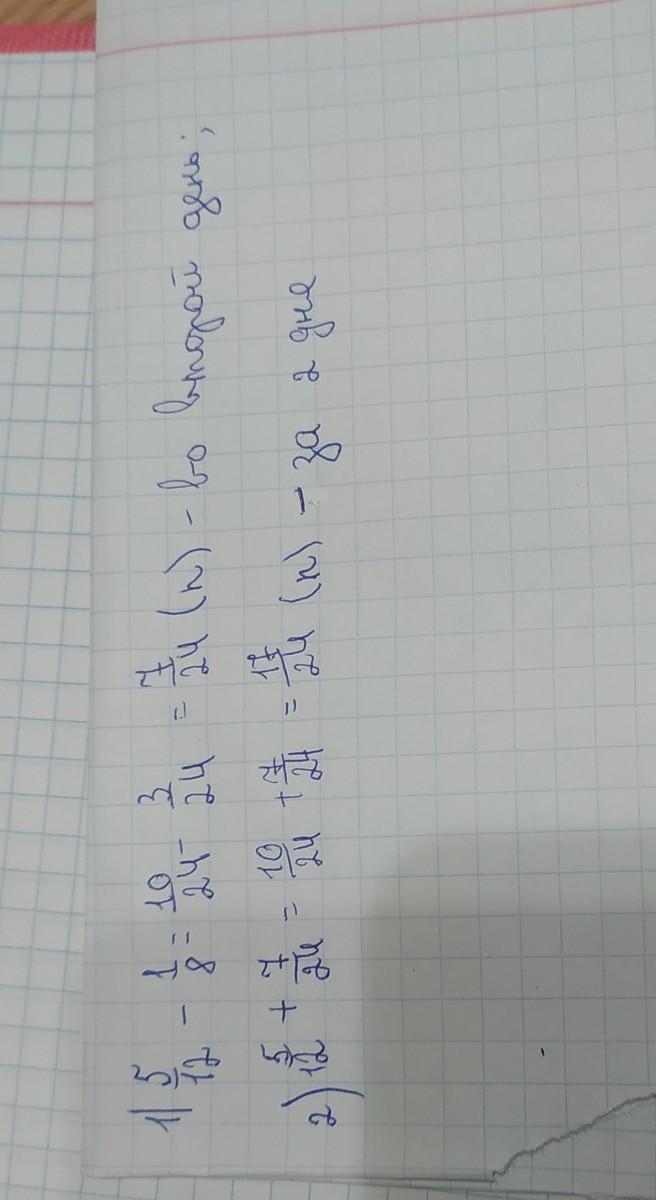 1) 5/12 - 1/8 = 10/24 - 3/24 = 7/24 (п) - во второй день;
2) 5/12 + 7/24 = 10/24 + 7/24 = 17/24 (п) - за 2 дня